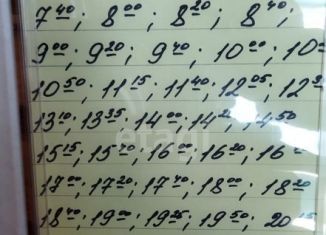 7 40; 8 00; 8 20; 8 40;
9 00; 9 20; 9 40; 10 00; 10
10 50; 11 15; 11 40; 12 05; 12
13 10; 13 35; 14 00; 14 2; 14 50
15 15; 15 40; 16 00; 16 20; 16
17 00; 17 20; 17 40; 18 00; 18 20
18 40; 19 00; 19 25; 19 50; 20 15
etagi